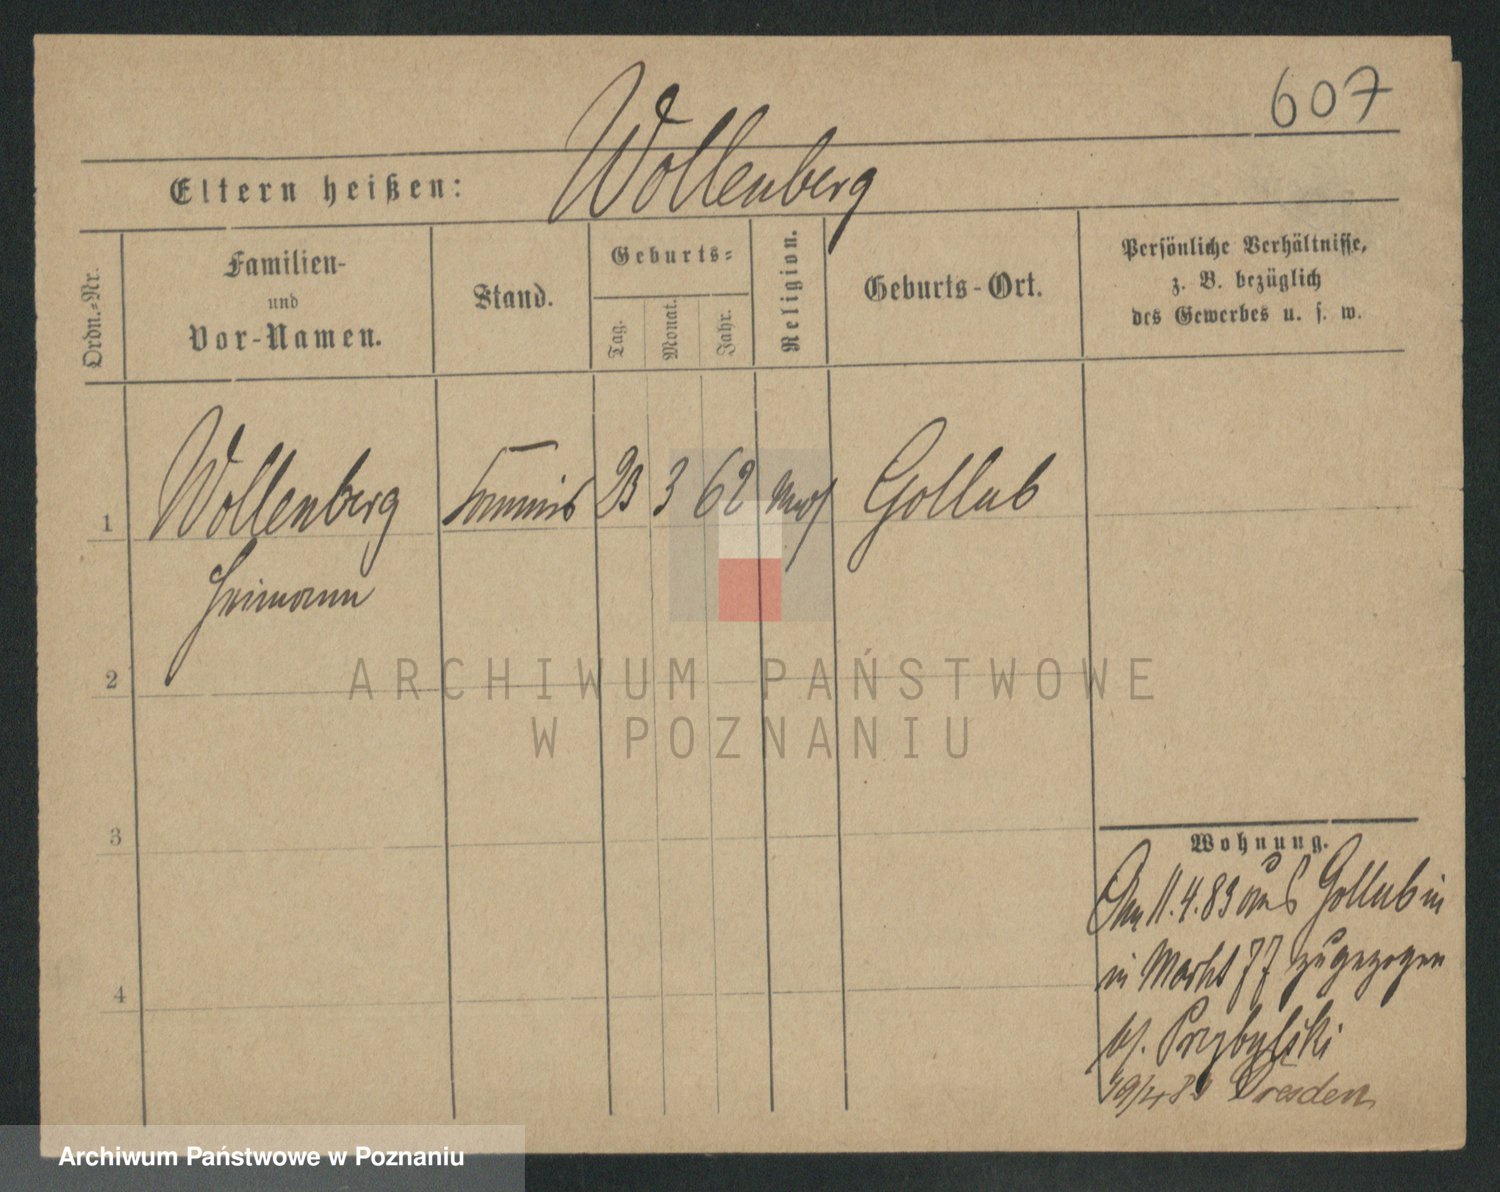 607
Wollenberg
Eltern heißen:
Ordn.-Nr.
Familien-
und
Vor-Namen.
Stand.
Geburts-
Tag.
Monat.
Jahr.
Religion.
Geburts-Ort.
Persönliche Verhältnisse,
z. B. bezüglich
des Gewerbes u. s. w.
1 Wollenberg Commis 23 3 62 mos Gollub
Heimann
2
3
4
Wohnung.
Am 11.4.83 aus Gollub in
in Markt 77 zugezogen
b/. Przybylski
Dresden
ARCHIWUM PAŃSTWOWE
W POZNANIU
Archiwum Państwowe w Poznaniu